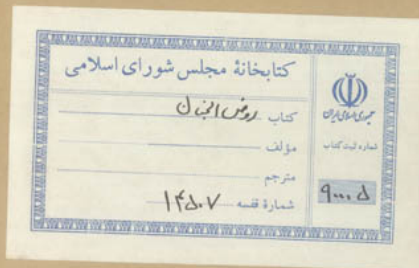 کتابخانهٔ مجلس شورای اسلامی
کتاب روض الجنان
مؤلف
مترجم
شمارهٔ قفسه ۱۴۵۰۷
جمهوری اسلامی ایران
شماره ثبت کتاب
۹۰۰۰۵